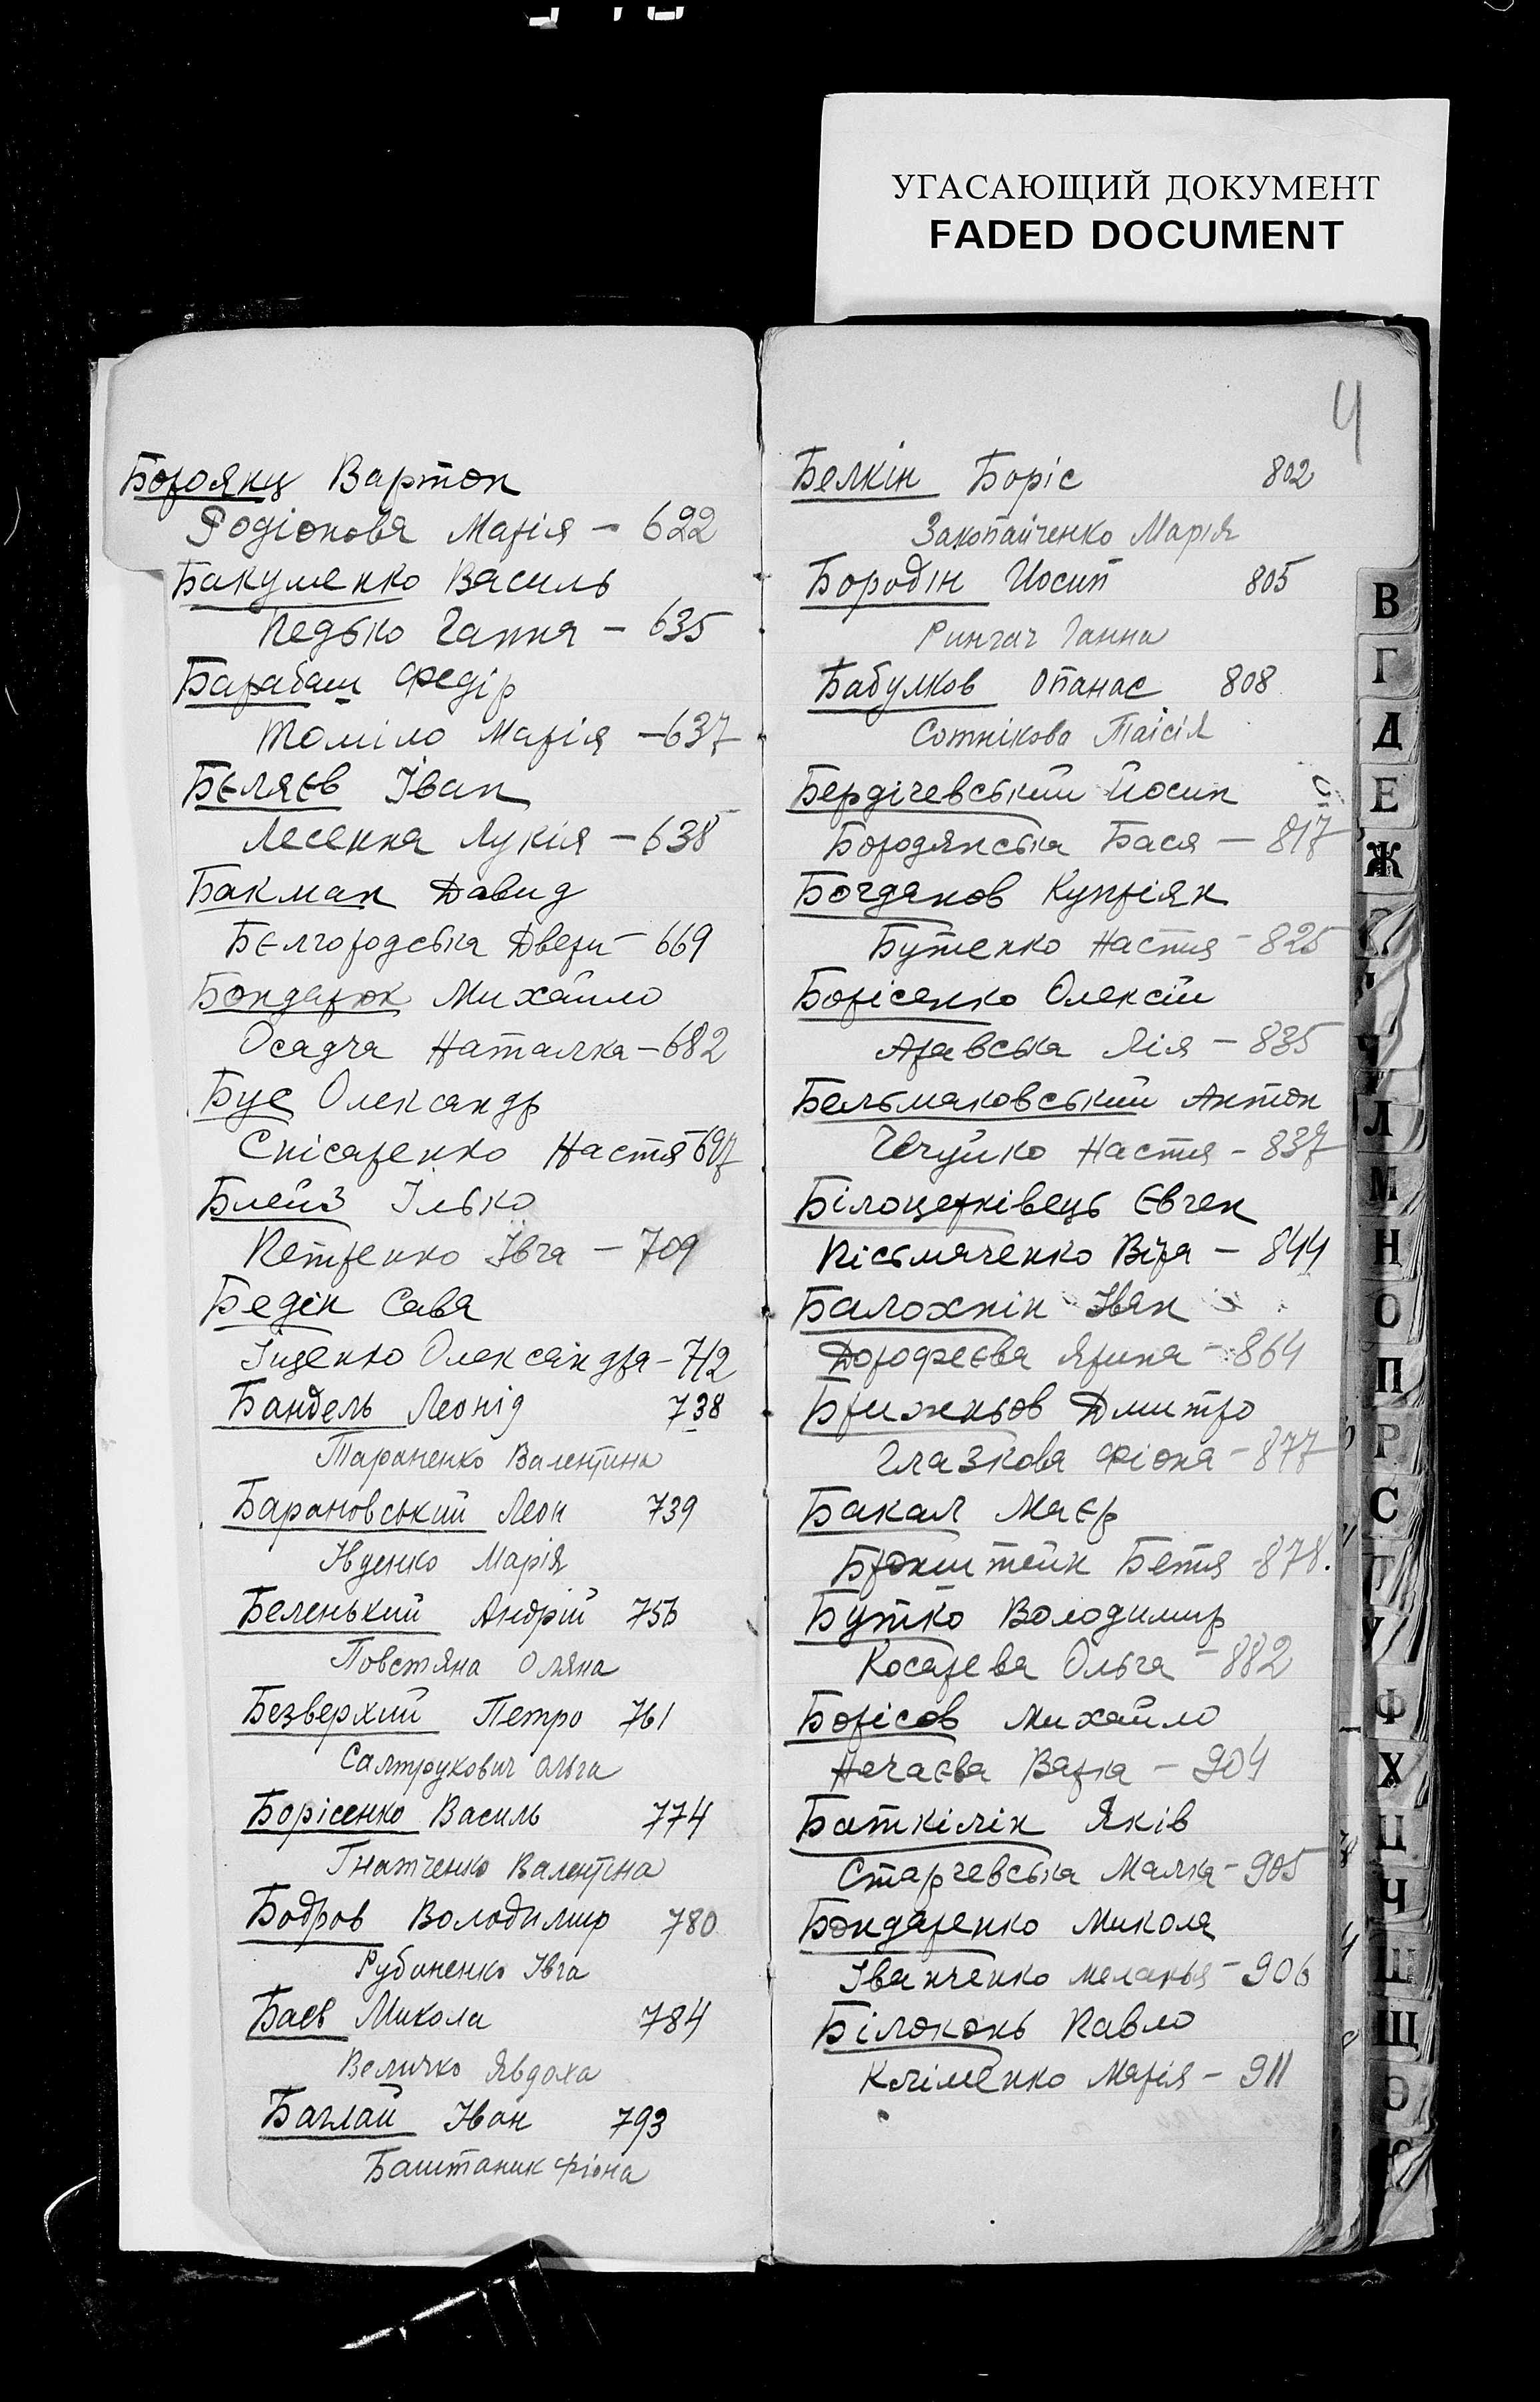 УГАСАЮЩИЙ ДОКУМЕНТ
FADED DOCUMENT
4
Бороянц Вартон
Родіонова Марія - 622
Бакуменко Василь
Педько Ганна - 635
Барабаш Федір
Томіло Марія - 637
Бєляєв Іван
Лесенна Лукія - 638
Бакман Давид
Бєлгородська Двери - 669
Бондарюк Михайло
Осадча Наталка - 682
Бус Олександр
Снісаренко Настя - 697
Блейз Ілько
Петренко Ївга - 709
Бедін Сава
Іщенко Олександра - 712
Бандель Леонід 738
Тараненко Валентина
Барановський Леон 739
Івденко Марія
Беленький Андрій 756
Повстяна Оляна
Безверхий Петро 761
Салтрукович Ольга
Борісенко Василь 774
Гнатченко Валентіна
Бодров Володимир 780
Рубаненко Івга
Баєв Микола 784
Величко Явдоха
Баглай Іван 793
Баштаник Фіона
Белкін Боріс 802
Закопайченко Марія
Бородін Йосип 805
Рингач Ганна
Бабулков Опанас 808
Сотнікова Таісія
Бердічевський Йосип
Бородянська Бася - 817
Богданов Купріян
Бутенко Настя - 825
Борісенко Олексій
Аравська Лія - 835
Бельмаковський Антон
Чечуйко Настя - 837
Білоцерківець Євген
Пісьмяченко Віра - 844
Балохнін Іван
Дорофеєва Ярина - 864
Брижньов Дмитро
Глазкова Фіона - 877
Бакал Маєр
Бронштейн Бетя - 878.
Бутко Володимир
Косарева Ольга - 882
Борісов Михайло
Нечаєва Варка - 904
Баткілін Яків
Старчевська Малка - 905
Бондаренко Микола
Іванченко Меланья - 906
Білоконь Павло
Кліменко Марія - 911
В
Г
Д
Е
Ж
Л
М
Н
О
П
Р
С
Т
У
Ф
Х
Ц
Ч
Ш
Щ
Э